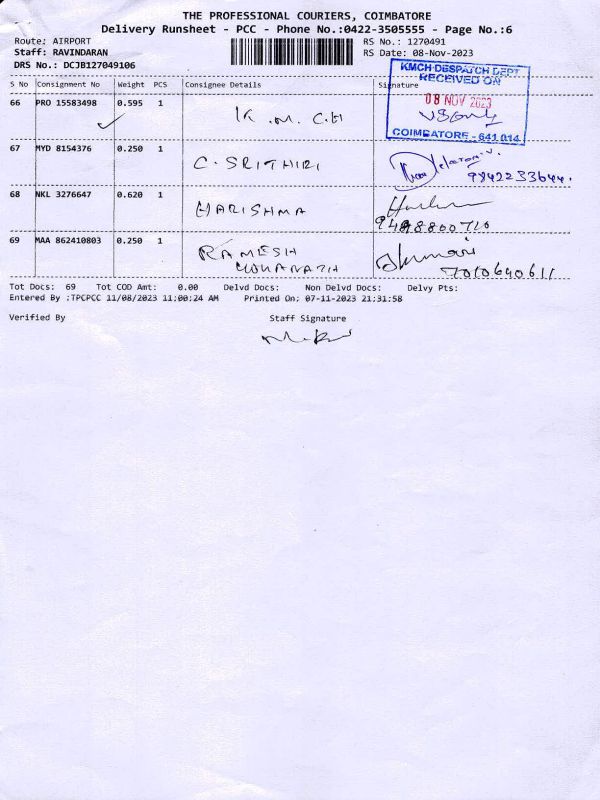 THE PROFESSIONAL COURIERS, COIMBATORE
Delivery Runsheet - PCC - Phone No.:0422-3505555 - Page No.:6
Route: AIRPORT RS No.: 1270491
Staff: RAVINDARAN RS Date: 08-Nov-2023
DRS No.: DCJB127049106
S No Consignment No Weight PCS Consignee Details Signature
KMCH DESPATCH DEPT
RECEIVED ON
08 NOV 2023
COIMBATORE - 641 014
66 PRO 15583498 0.595 1 K.M.C.H
67 MYD 8154376 0.250 1 C. SRITHIRI
9842233644.
68 NKL 3276647 0.620 1 HARISHMA
69 MAA 862410803 0.250 1 RAMESH
7010640611
Tot Docs: 69 Tot COD Amt: 0.00 Delvd Docs: Non Delvd Docs: Delvy Pts:
Entered By :TPCPCC 11/08/2023 11:00:24 AM Printed On; 07-11-2023 21:31:58
Verified By Staff Signature